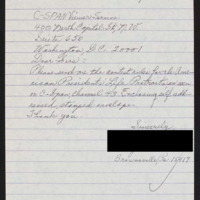 C-SPAN Viewer Services
400 North Capitol St., N.W.
Suite 650
Washington, D.C. 20001
Dear Sirs:
Please send me the contest rules for the American
Presidents: Life Portraits as seen
on C-Span, channel 43. Enclosing self addressed,
stamped envelope.
Thank you.
Sincerely,